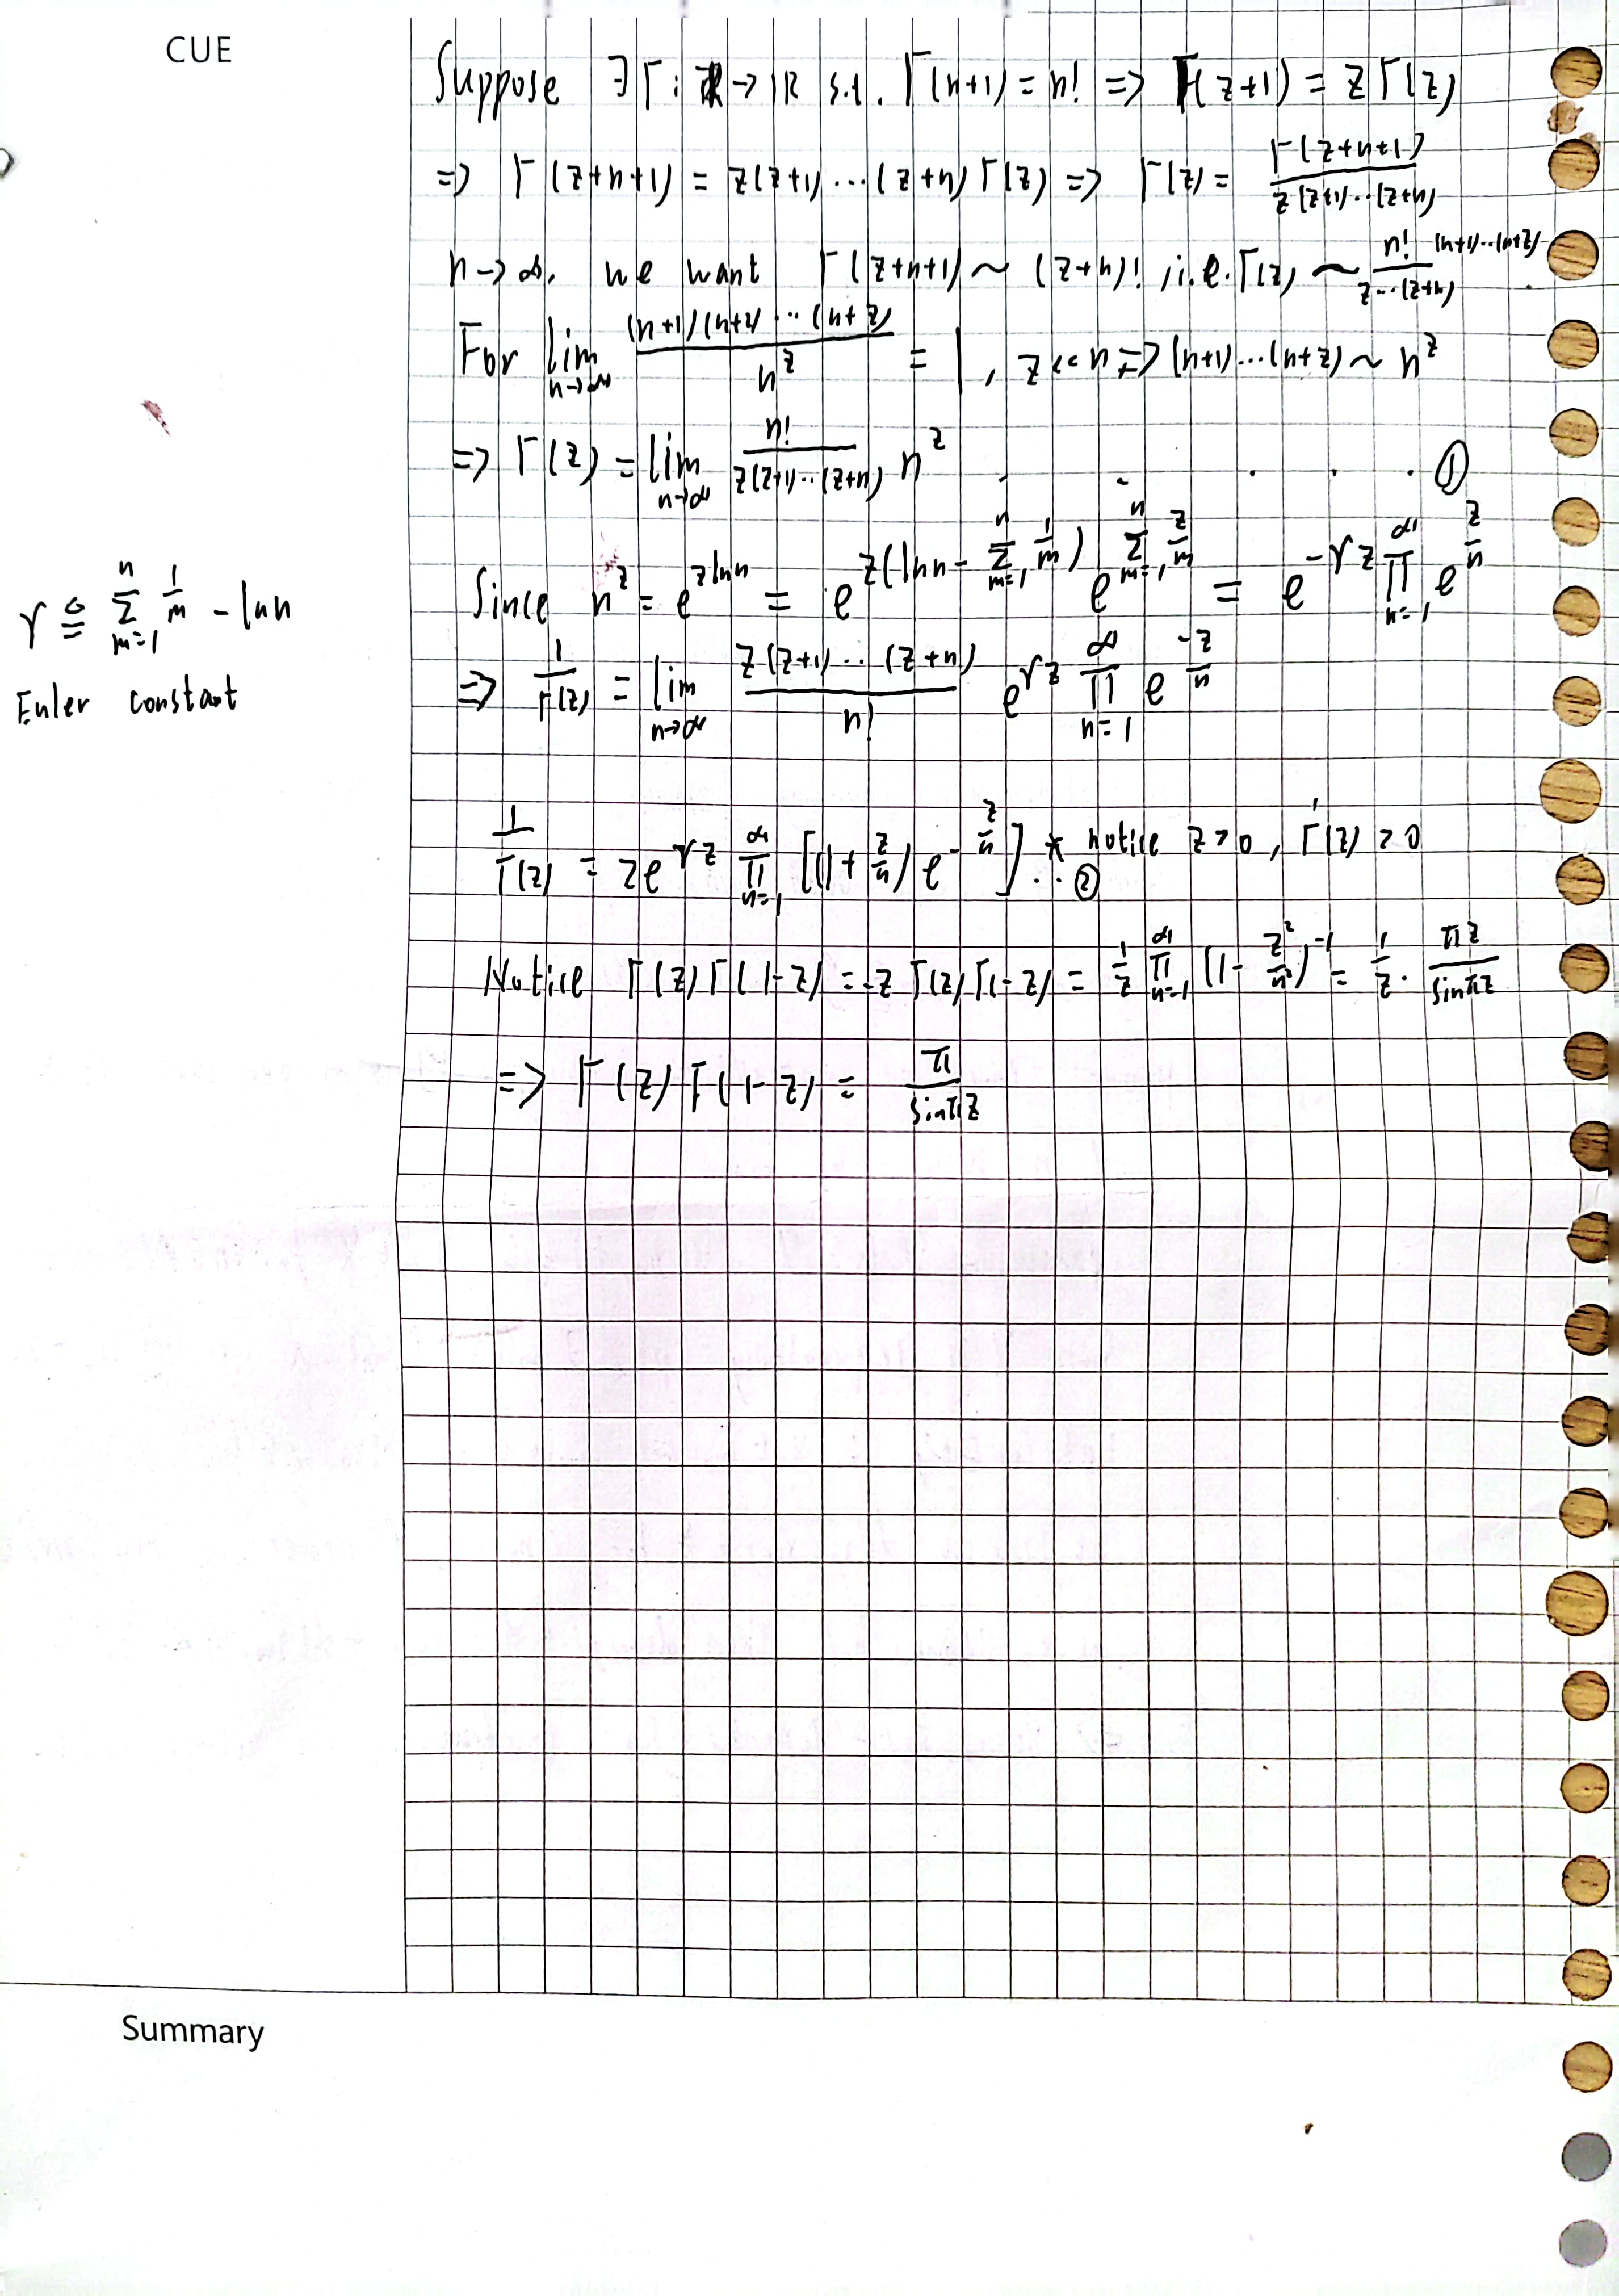 CUE
Suppose ∃Γ: ℝ → ℝ s.t. Γ(n+1) = n! => Γ(z+1) = zΓ(z)
=> Γ(z+n+1) = z(z+1)⋯(z+n)Γ(z) => Γ(z) = Γ(z+n+1) / z(z+1)⋯(z+n)
n→∞, we want Γ(z+n+1) ~ (z+n)!, i.e. Γ(z) ~ n! / z⋯(z+n) (n+1)⋯(n+z)
For lim n→∞ (n+1)(n+2)⋯(n+z) / n^z = 1, z<<n => (n+1)⋯(n+z) ~ n^z
=> Γ(z) = lim n→∞ n! / z(z+1)⋯(z+n) n^z . . . . . ①
Since n^z = e^{z ln n} = e^{z(ln n - ∑_{m=1}^{n} 1/m)} e^{∑_{m=1}^{n} z/m} = e^{-γz} ∏_{n=1}^{∞} e^{z/n}
γ ≙ ∑_{m=1}^{n} 1/m - ln n
Euler constant
=> 1/Γ(z) = lim n→∞ z(z+1)⋯(z+n) / n! e^{γz} ∏_{n=1}^{∞} e^{-z/n}
1/Γ(z) = ze^{γz} ∏_{n=1}^{∞} [(1+z/n) e^{-z/n}] * notice z>0, Γ(z)>0 ..②
Notice Γ(z)Γ(1-z) = -zΓ(z)Γ(-z) = 1/z ∏_{n=1}^{∞} (1-z²/n²)^{-1} = 1/z · πz/sinπz
=> Γ(z)Γ(1-z) = π/sinπz
Summary